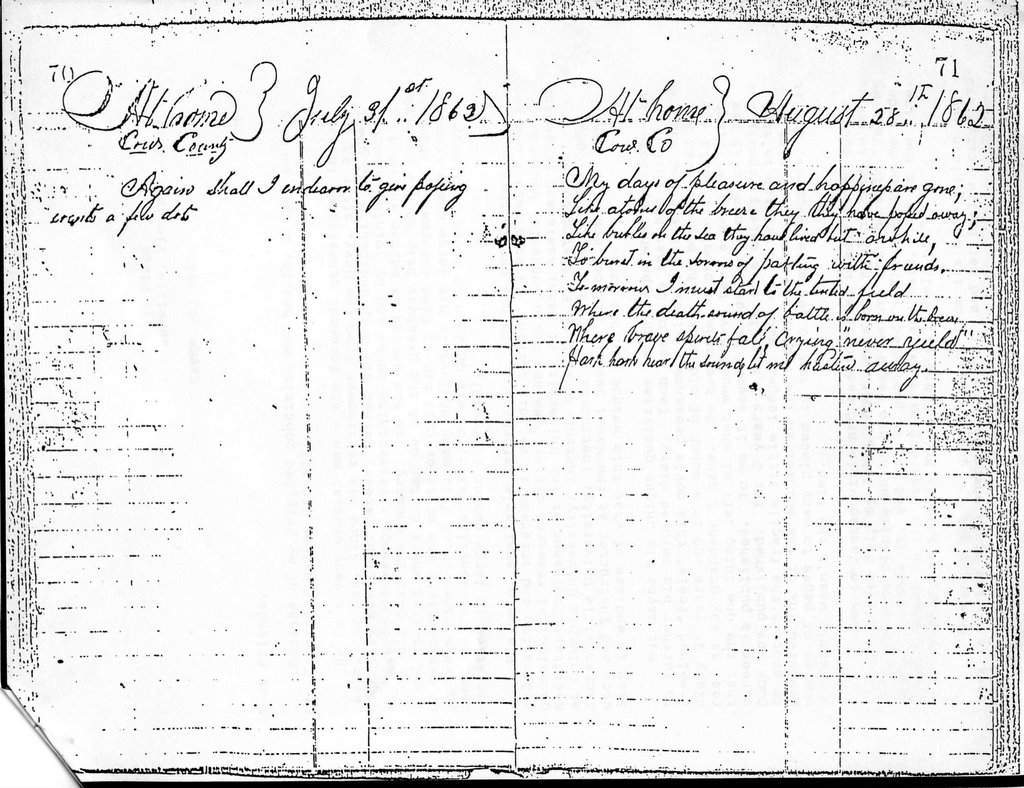 70
At home } July 31..st 1862
Cows. County
Again shall I endeavor to give passing
events a few dots
71
At home } August 28..th 1862
Cow. Co
My days of pleasure and happiness are gone,
Like atoms of the breeze they they have passed away;
Like bubles on the sea they have lived but awhile,
To burst in the of parting with friends.
To morrow I must start to the tented field
Where the death sound of battle is born on the breeze
Where brave spirits fall, crying "never yield"
Hark hark hear the sounds let me hasten away.